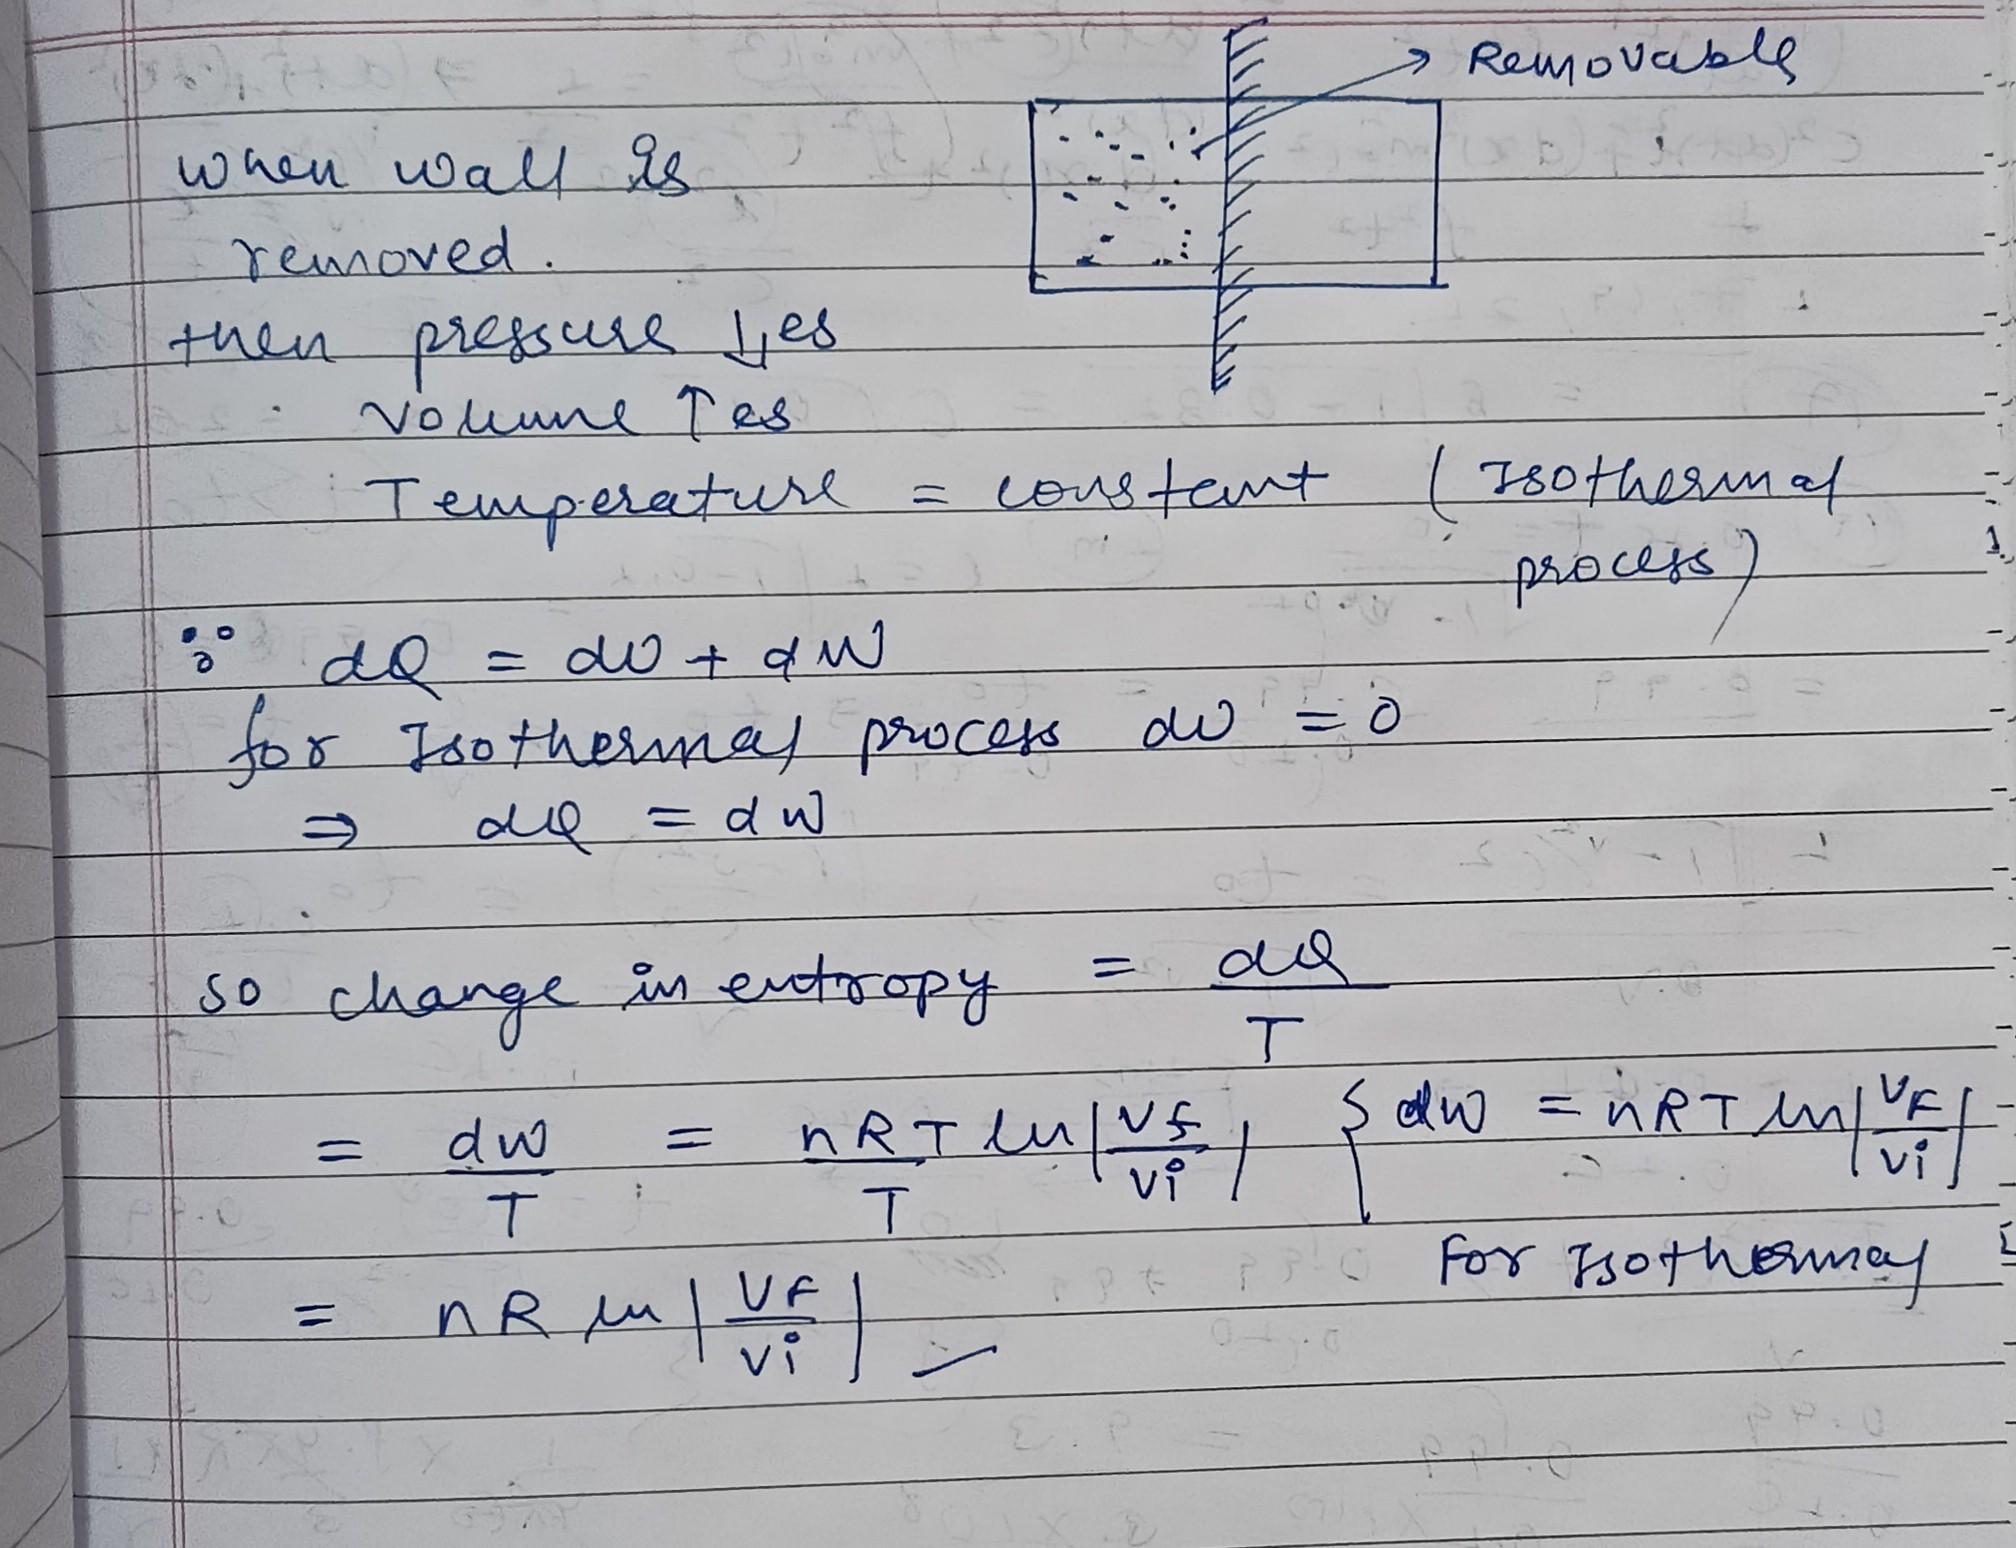 Removable
when wall is
removed.
then pressure ↓es
volume ↑es
Temperature = constant (Isothermal
process)
∵ dQ = dU + dW
for Isothermal process dU = 0
⇒ dQ = dW
so change in entropy = dQ/T
= dW/T = nRT ln|Vf/Vi|/T { dW = nRT ln|VF/Vi|
For Isothermal
= nR ln|VF/Vi|